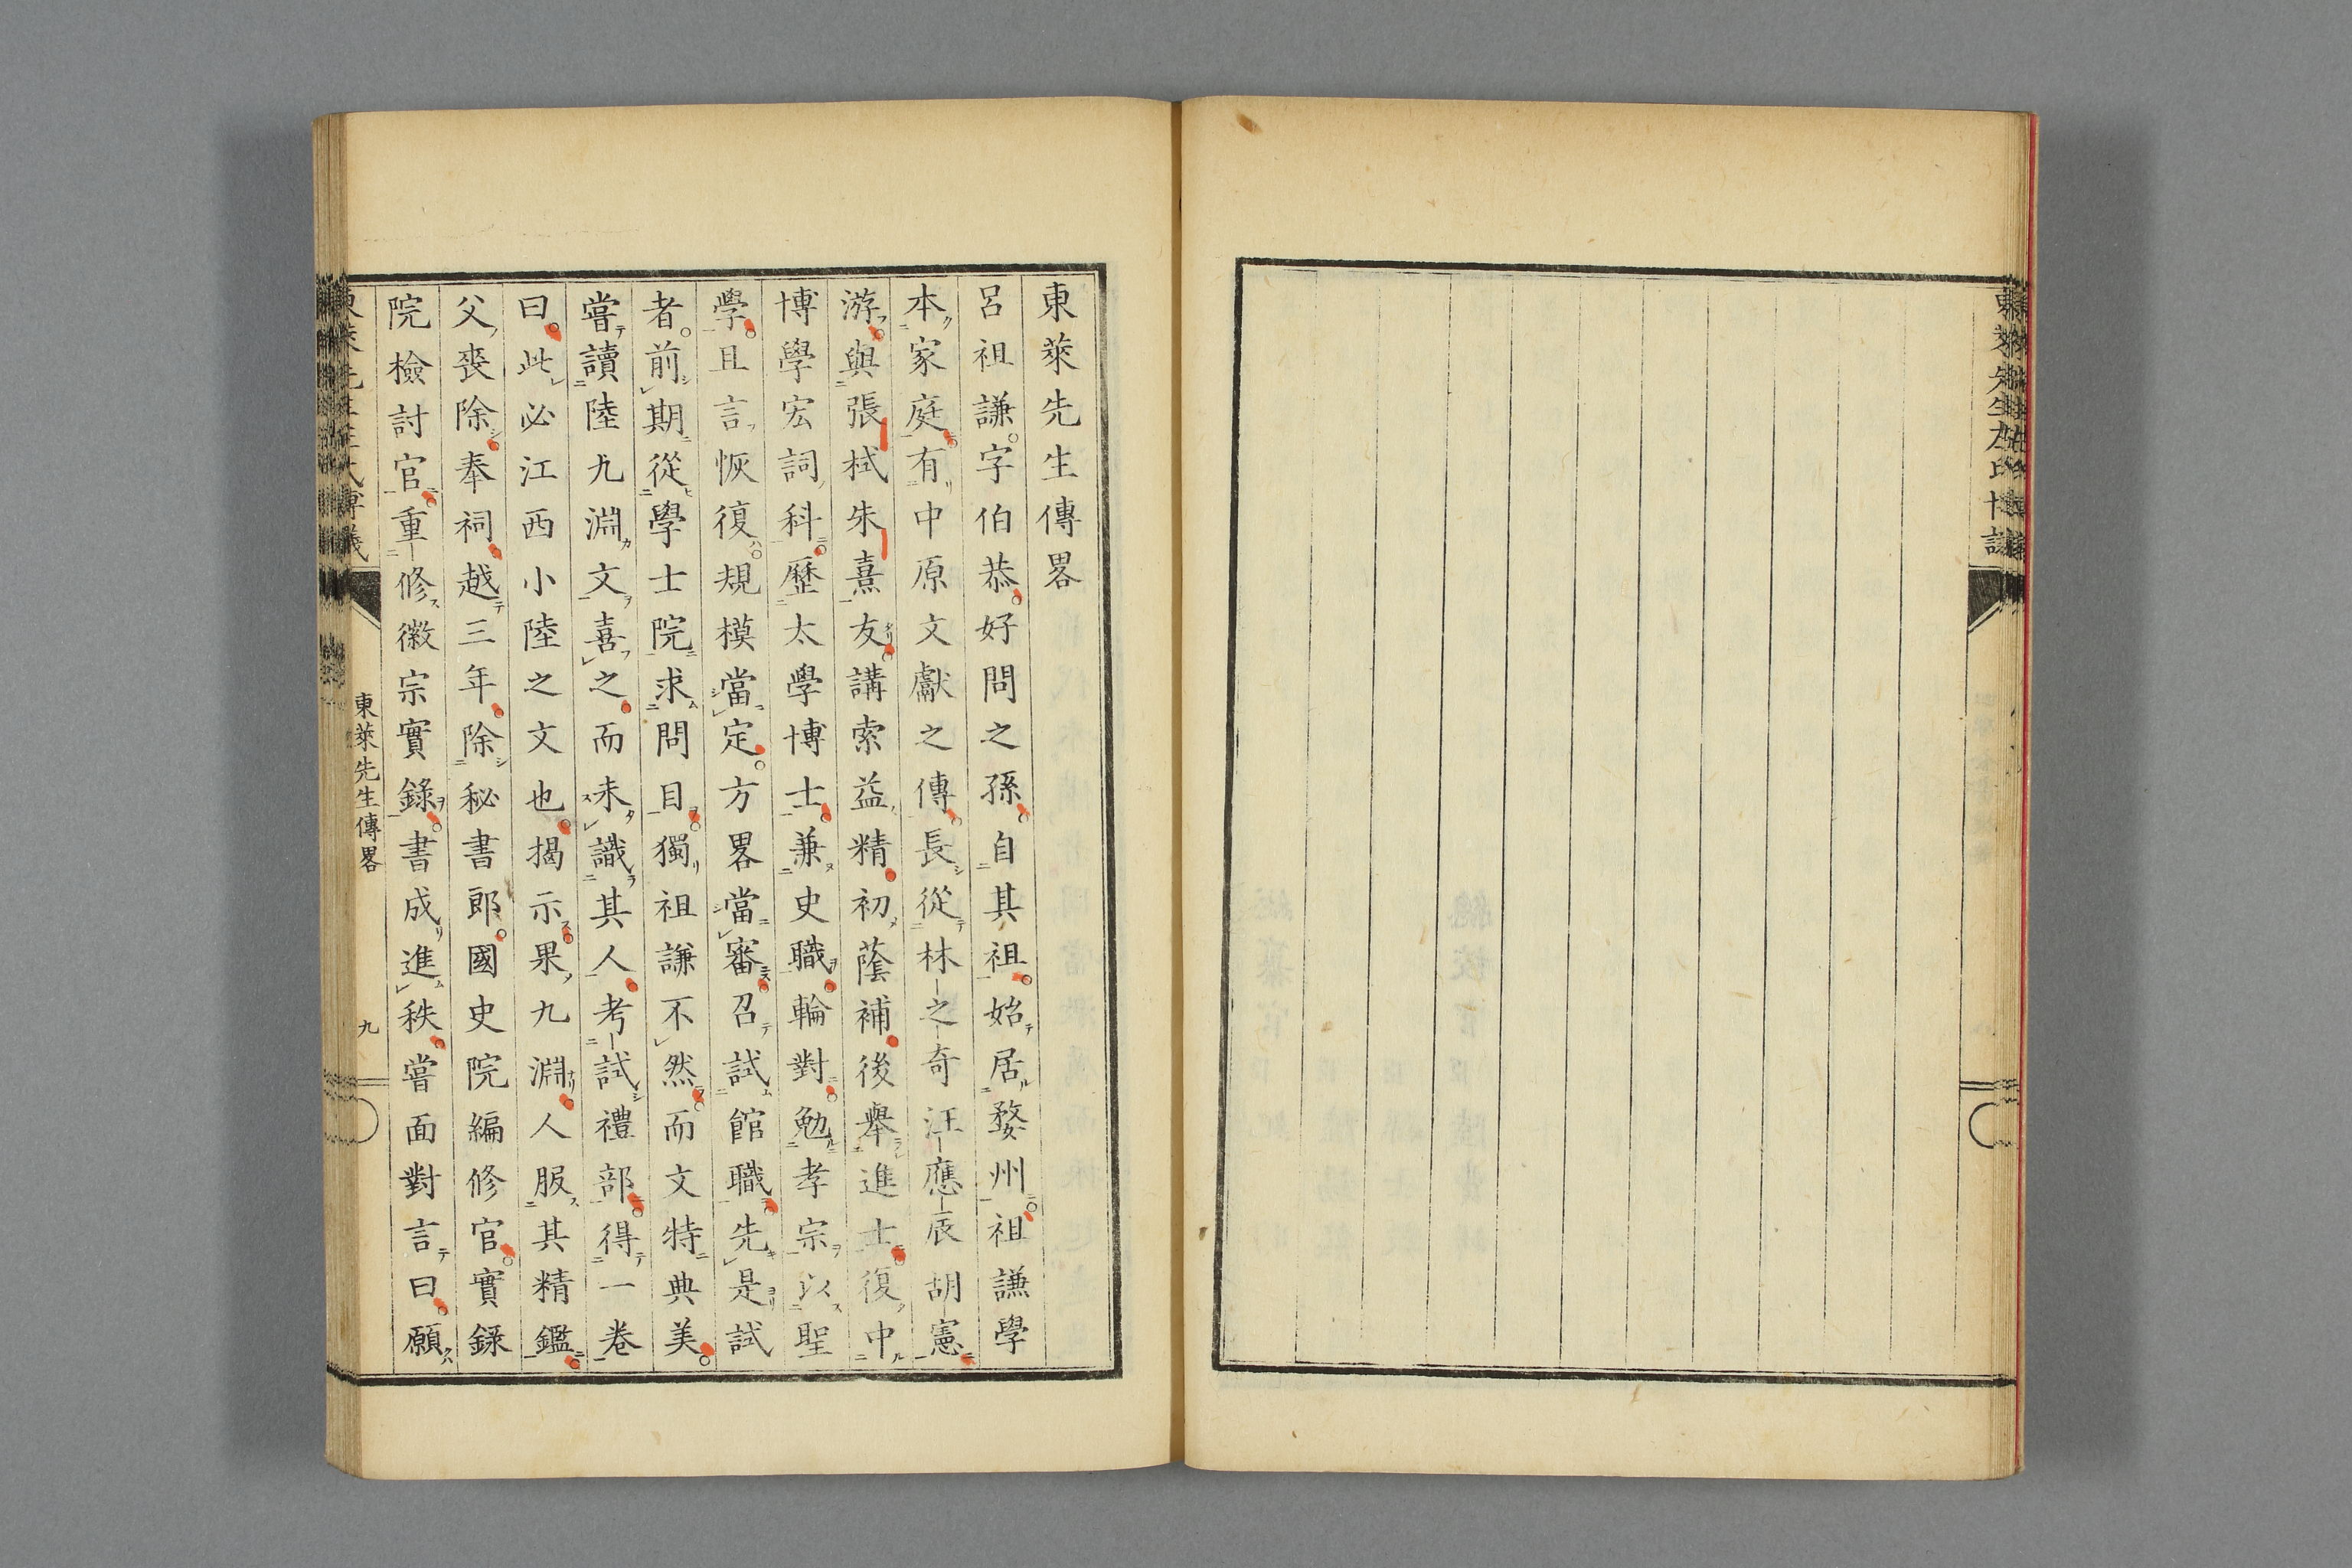 東萊先生傳畧
呂祖謙字伯恭好問之孫自其祖始居婺州祖謙學
本家庭有中原文獻之傳長從林之奇汪應辰胡憲
游與張栻朱熹友講索益精初蔭補後舉進士復中
博學宏詞科歷太學博士兼史職輪對勉孝宗以聖
學且言恢復規模當定方畧當審召試館職先是試
者前期從學士院求問目獨祖謙不然而文特典美
嘗讀陸九淵文喜之而未識其人考試禮部得一卷
曰此必江西小陸之文也揭示果九淵人服其精鑑
父喪除奉祠越三年除秘書郎國史院編修官實録
院檢討官重修徽宗實錄書成進秩嘗面對言曰願
東萊先生傳畧
九